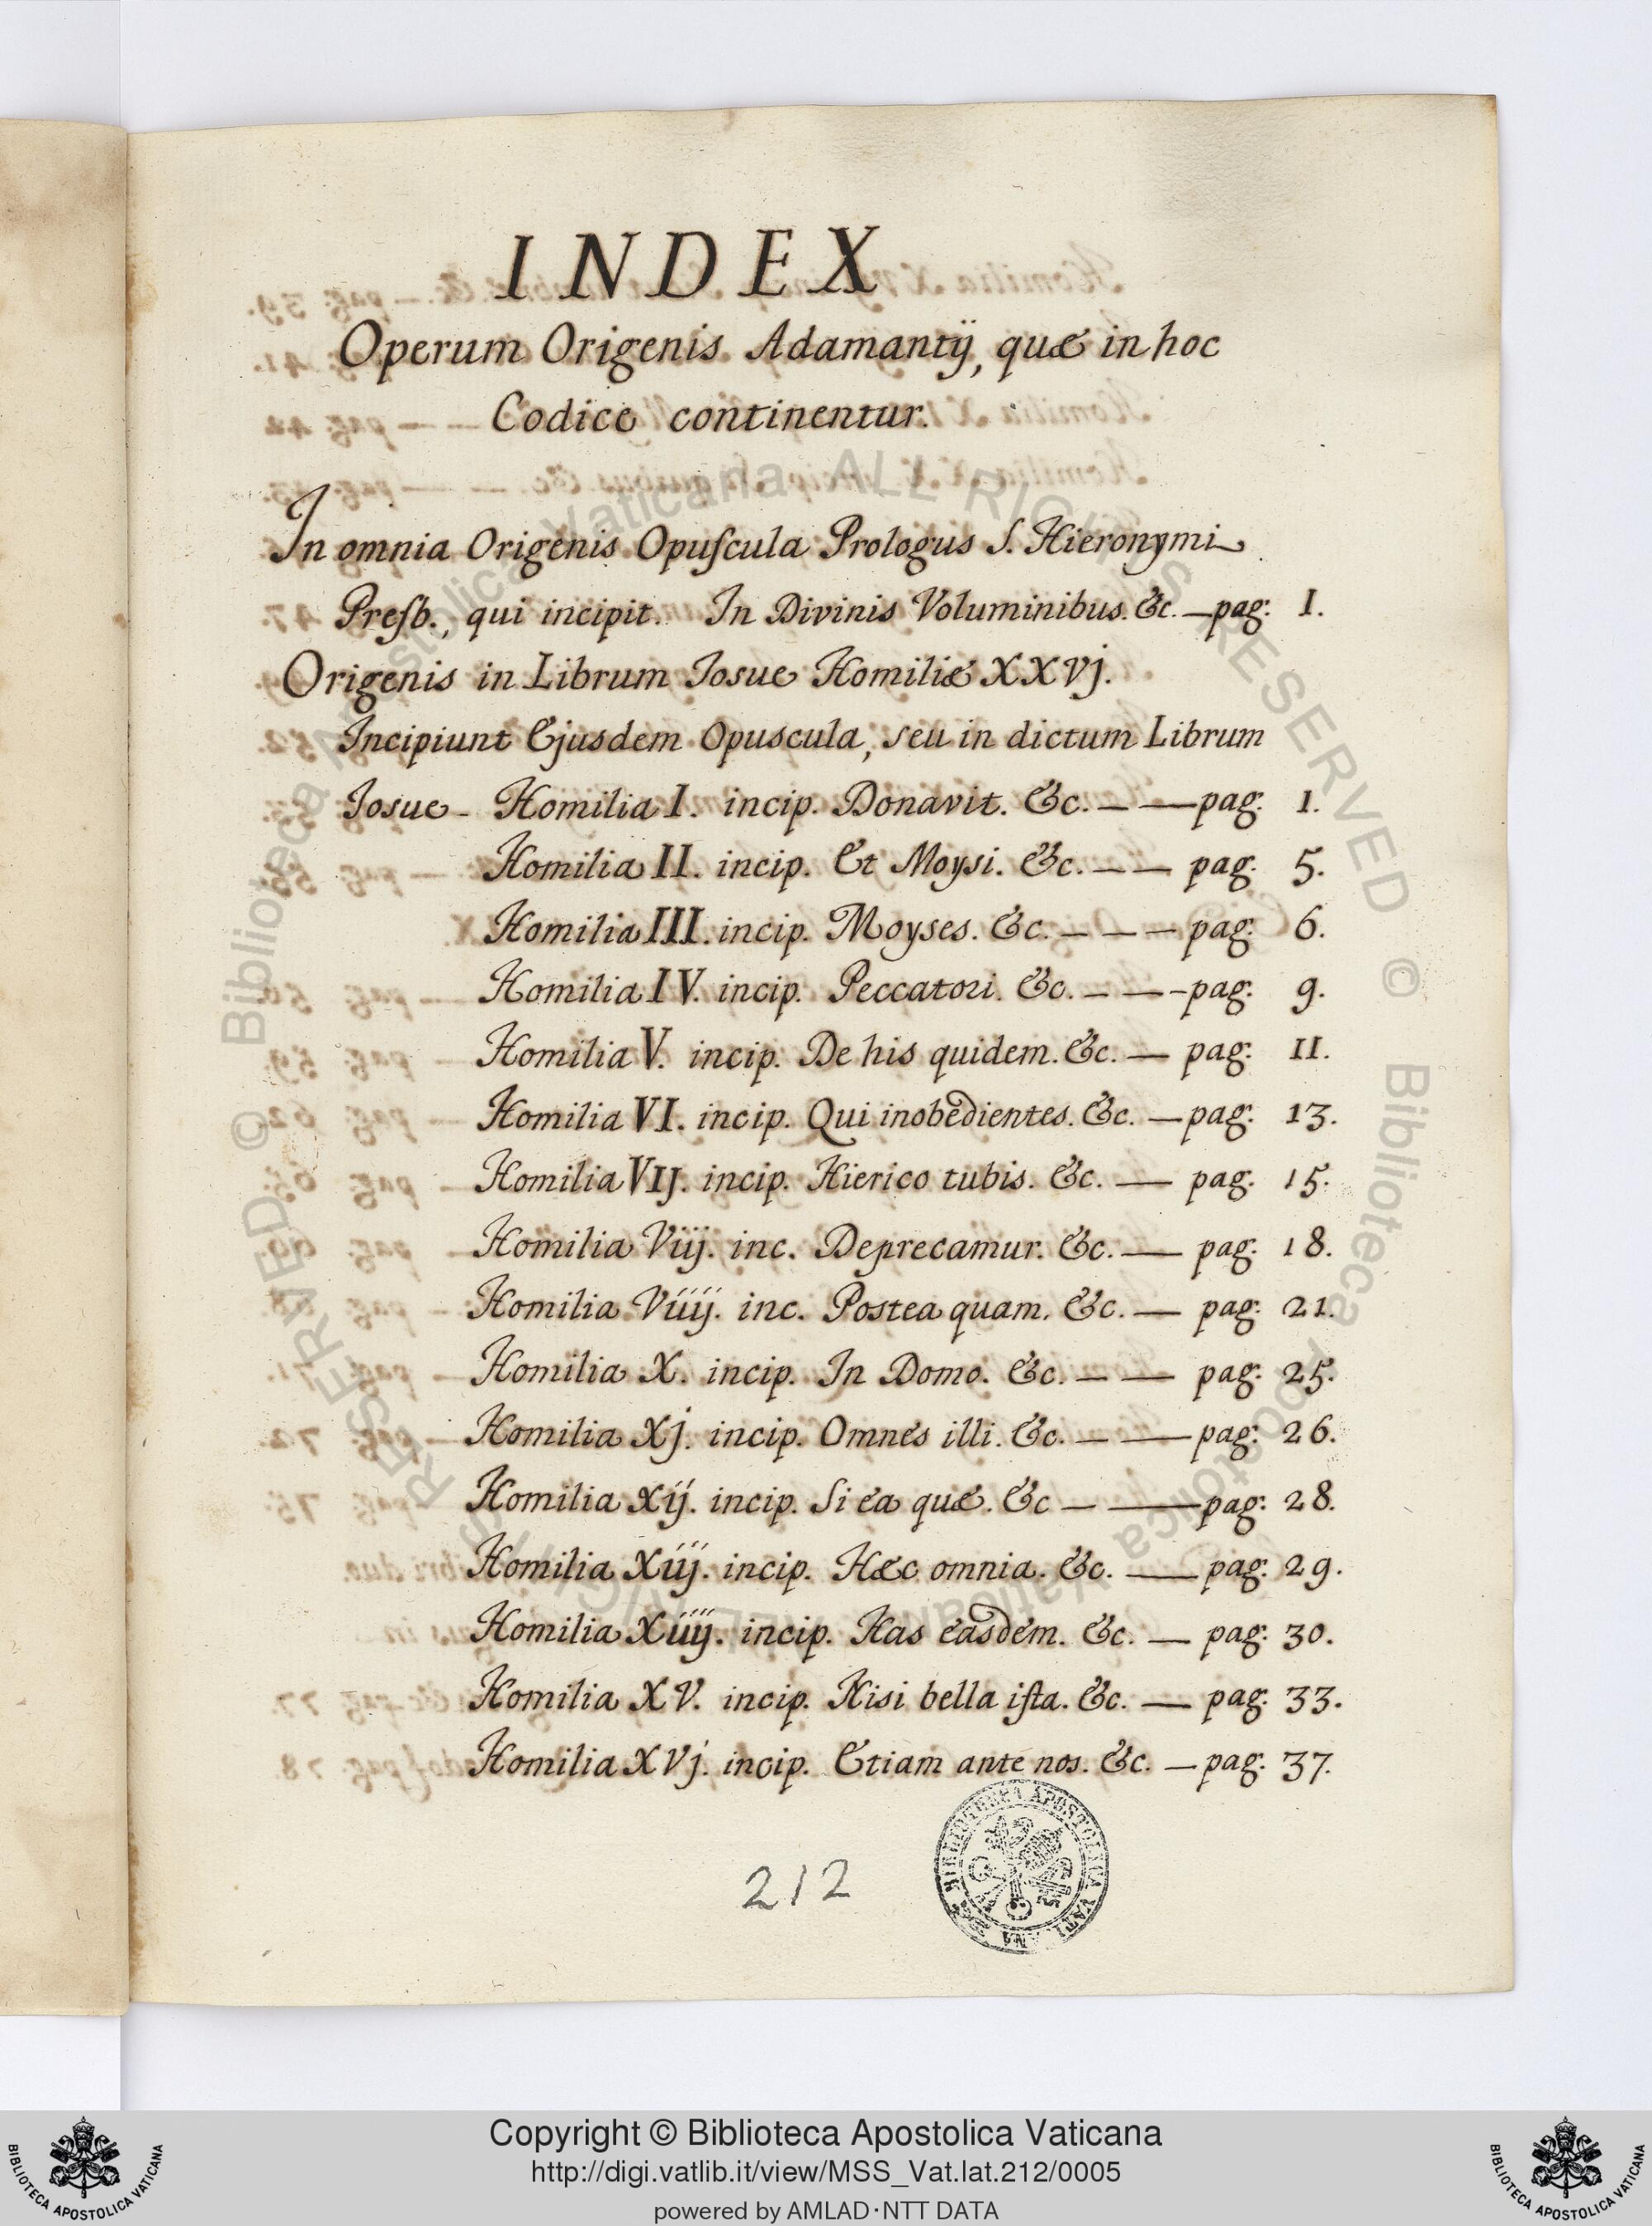 INDEX
Operum Origenis Adamantij, quæ in hoc
Codice continentur.
In omnia Origenis Opuscula Prologus S. Hieronymi
Presb., qui incipit. In Divinis Voluminibus. &c. — pag. I.
Origenis in Librum Iosue Homiliæ XXVj.
Incipiunt Ejusdem Opuscula, seu in dictum Librum
Iosue - Homilia I. incip. Donavit. &c. — — pag. 1.
Homilia II. incip. Et Moysi. &c. — — pag. 5.
Homilia III. incip. Moyses. &c. — — — pag. 6.
Homilia IV. incip. Peccatori. &c. — — - pag. 9.
Homilia V. incip. De his quidem. &c. — pag. II.
Homilia VI. incip. Qui inobedientes. &c. — pag. 13.
Homilia VIJ. incip. Hierico tubis. &c. — pag. 15.
Homilia Viij. inc. Deprecamur. &c. — pag. 18.
Homilia Viiij. inc. Postea quam. &c. — pag. 21.
Homilia X. incip. In Domo. &c. — — pag. 25.
Homilia Xj. incip. Omnes illi. &c. — — pag. 26.
Homilia Xij. incip. Si ea quæ. &c — — pag. 28.
Homilia Xiij. incip. Hæc omnia. &c. — pag. 29.
Homilia Xiiij. incip. Has easdem. &c. — pag. 30.
Homilia XV. incip. Nisi bella ista. &c. — pag. 33.
Homilia XVj. incip. Etiam ante nos. &c. — pag. 37.
212
BIBLIOTHECA APOSTOLICA VATICANA
© Biblioteca Apostolica Vaticana ALL RIGHTS RESERVED
Copyright © Biblioteca Apostolica Vaticana
http://digi.vatlib.it/view/MSS_Vat.lat.212/0005
powered by AMLAD·NTT DATA
BIBLIOTECA APOSTOLICA VATICANA
BIBLIOTECA APOSTOLICA VATICANA